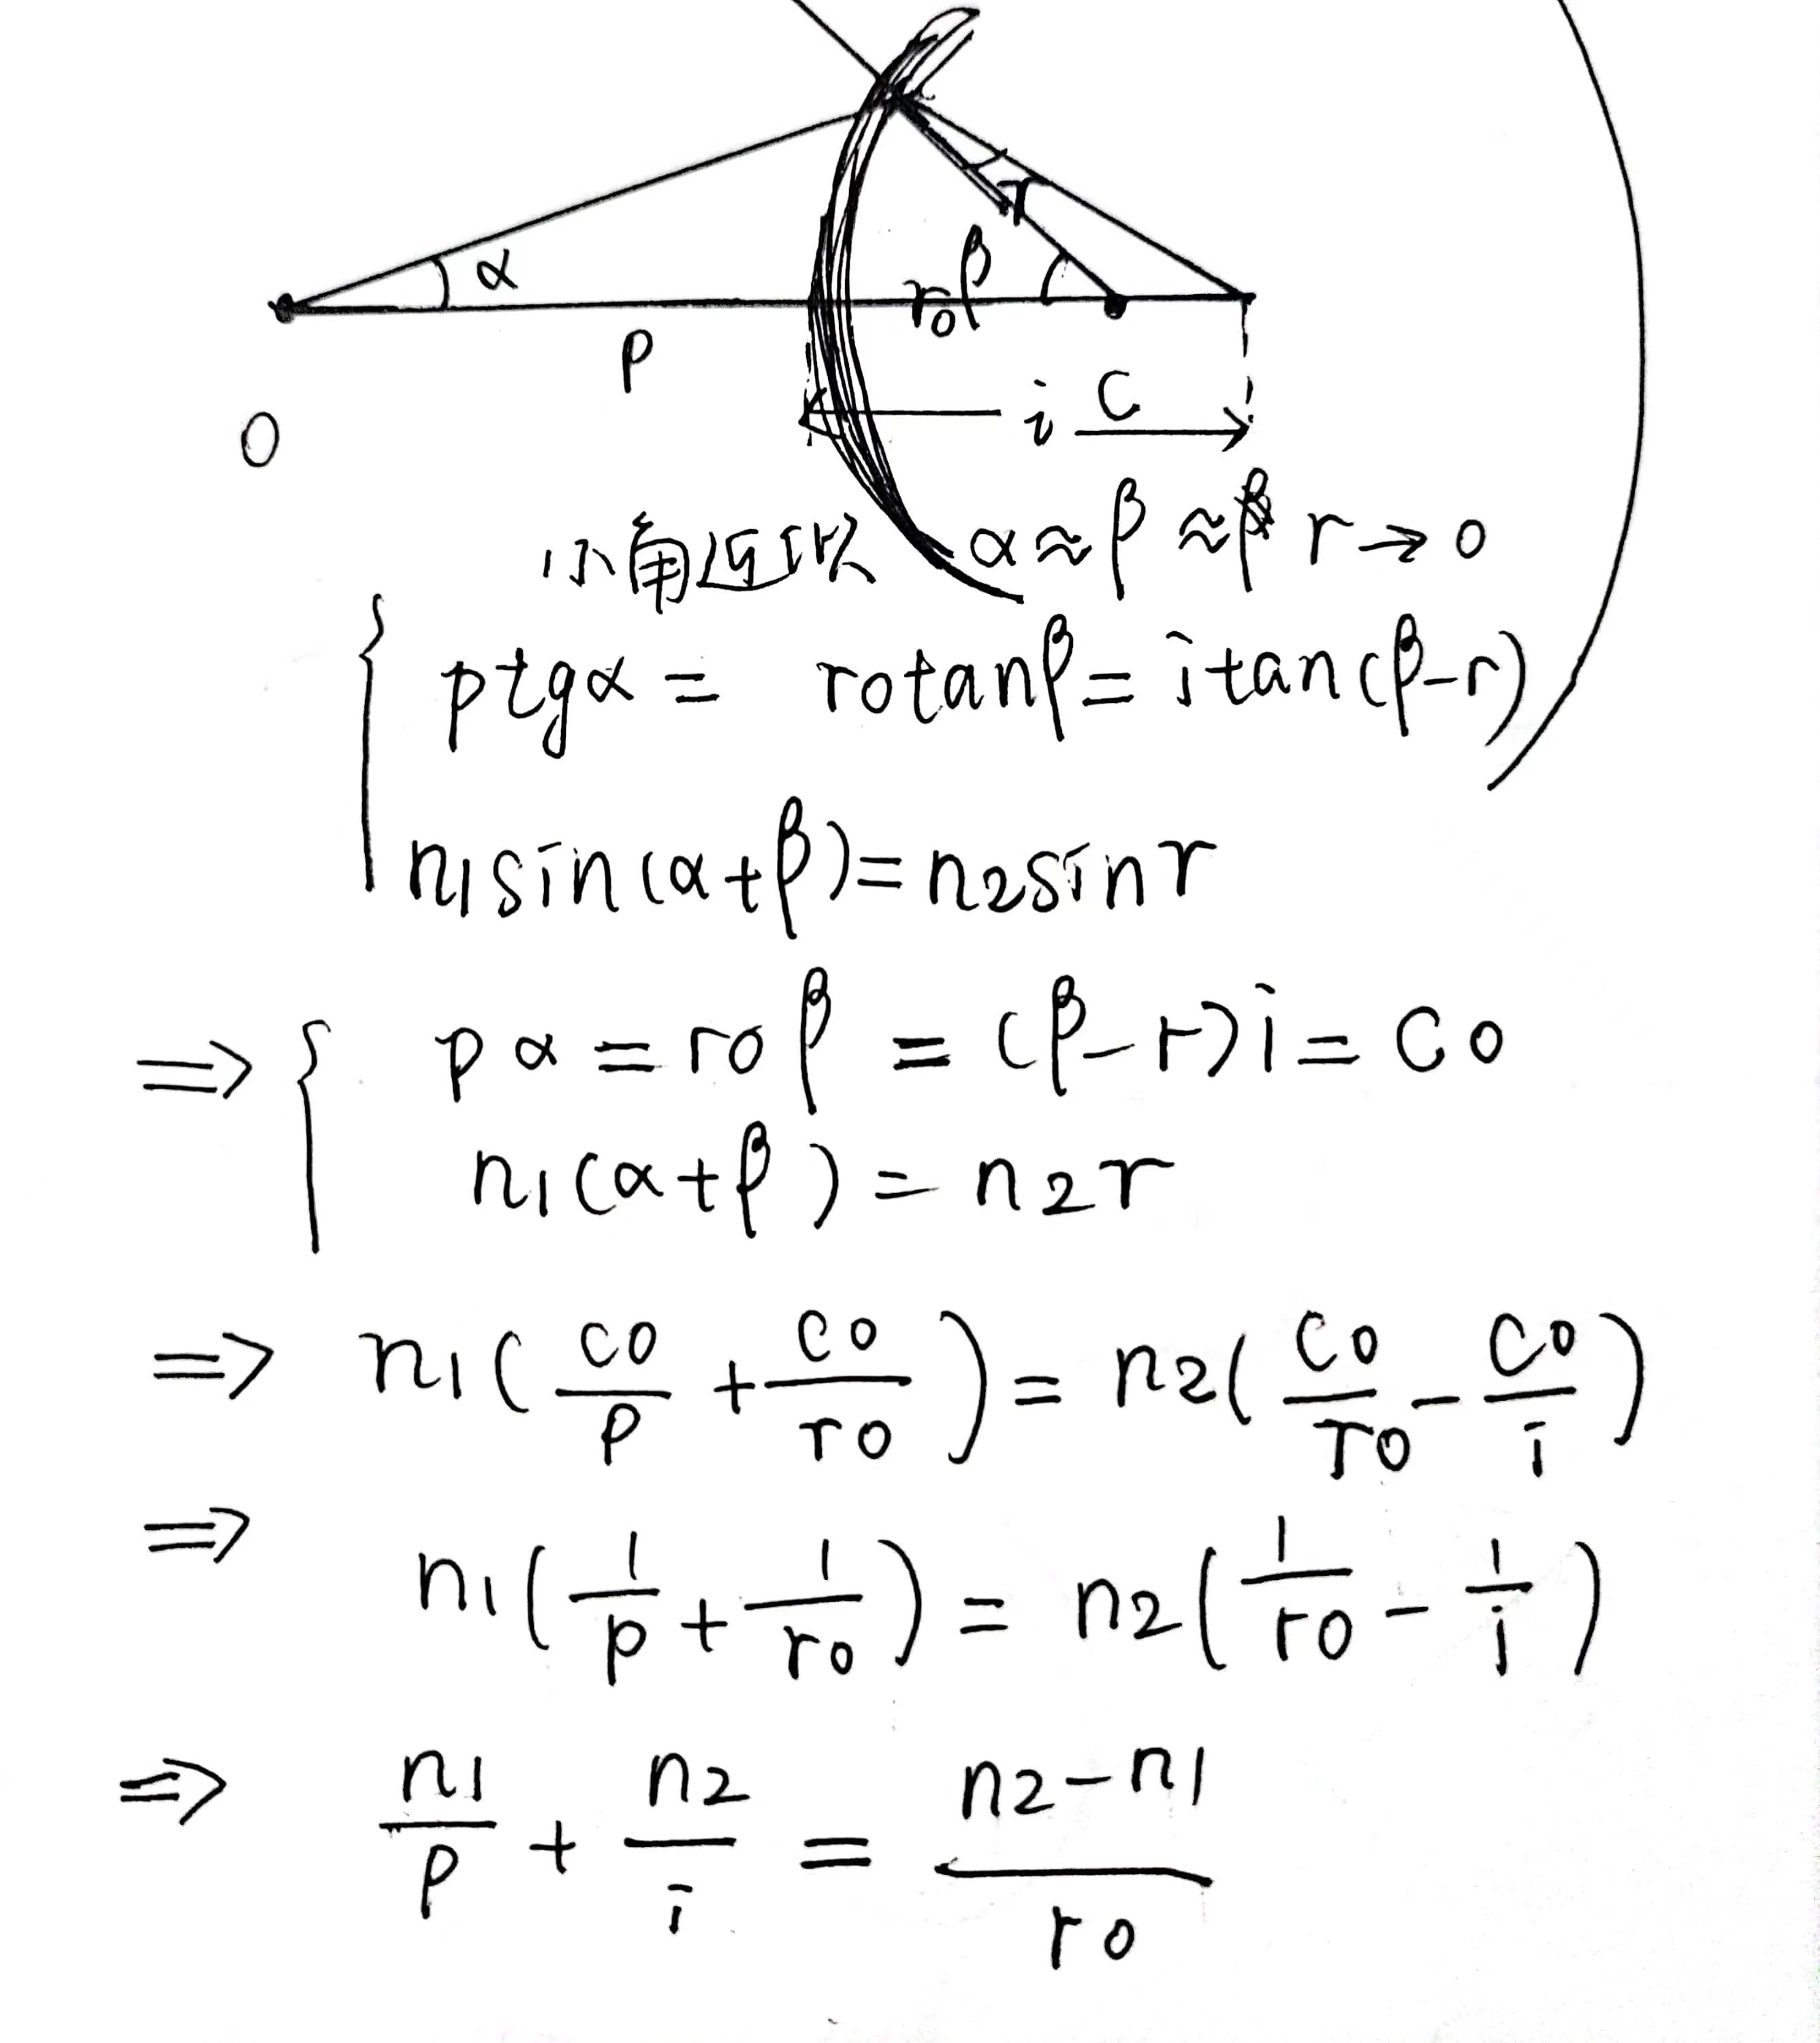 α
r
β
r0
p
i C
O
小角近似 α≈β≈β r→0
ptgα = rotanβ = itan(β-r)
n1sin(α+β)=n2sinr
⇒ pα = r0β = (β-r)i = C0
n1(α+β) = n2r
⇒ n1(C0/p + C0/r0) = n2(C0/r0 - C0/i)
⇒
n1(1/p + 1/r0) = n2(1/r0 - 1/i)
⇒ n1/p + n2/i = (n2-n1)/r0